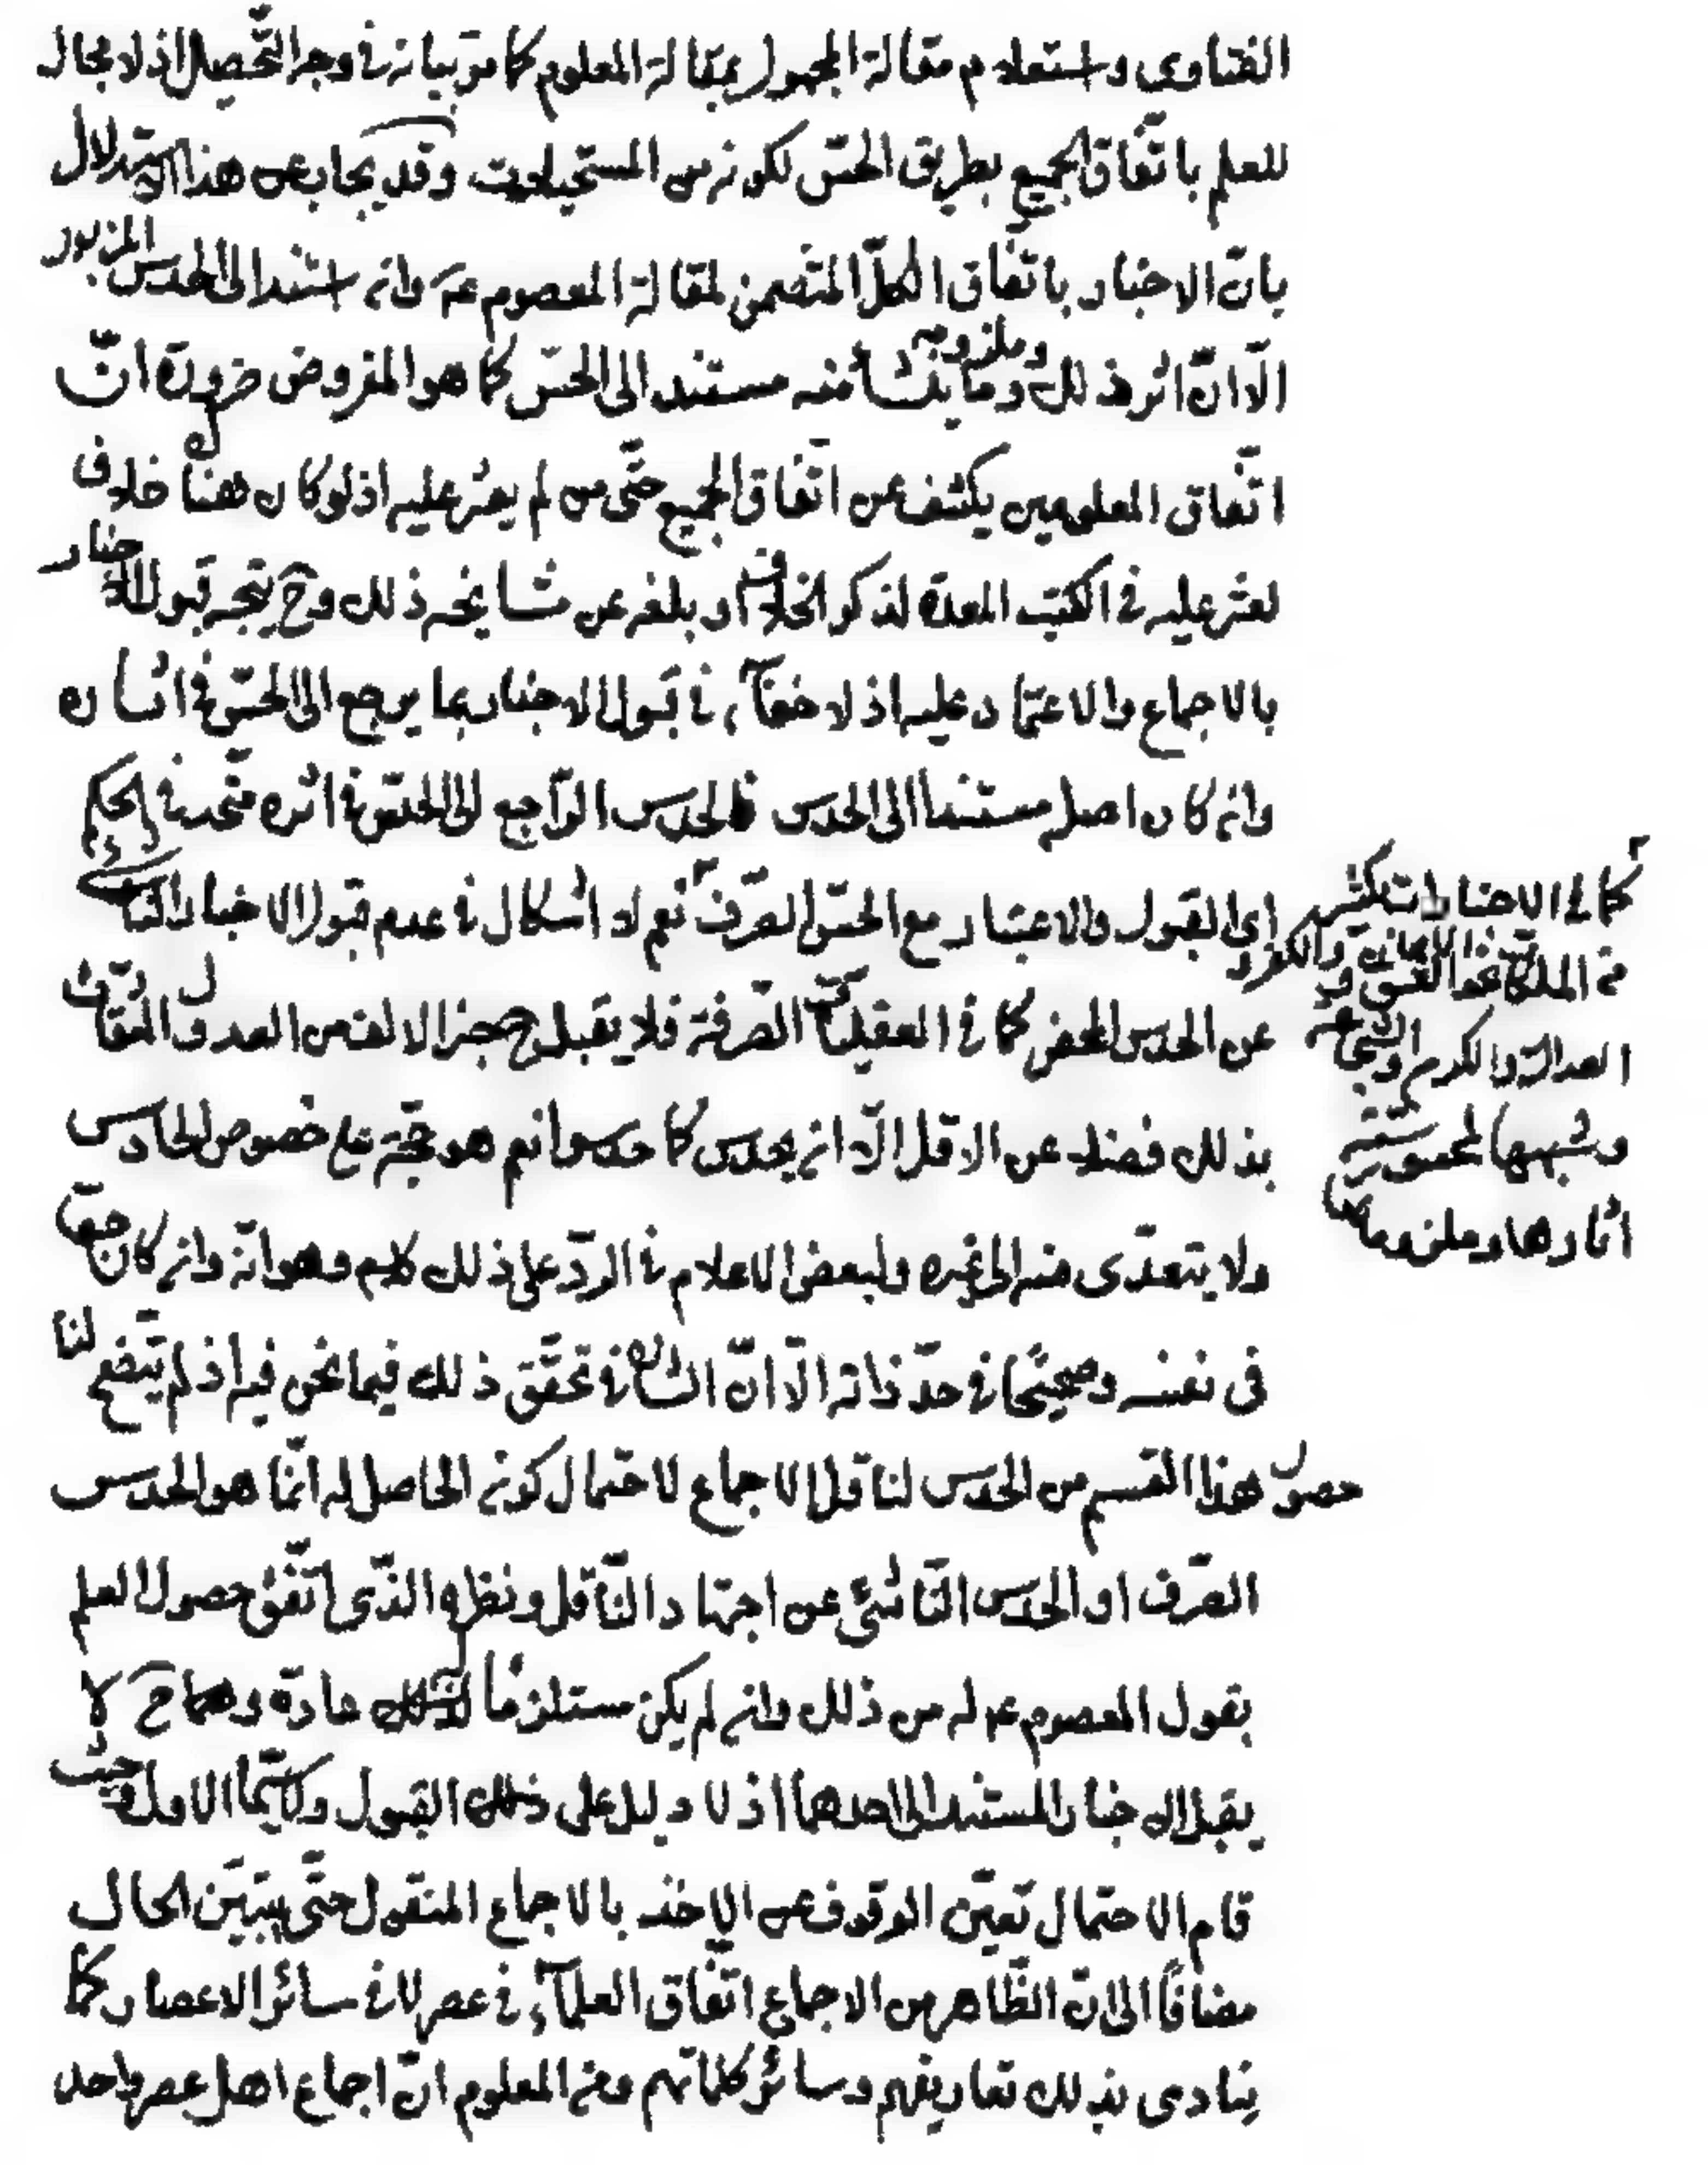 الفتاوى واستعلام مقالة المجهول بمقالة المعلوم كما مرّ بيانه في وجه التّحصيل اذ لا مجال
للعلم باتّفاق الجميع بطريق الحسّ لكونه من المستحيلات وقد يجاب عن هذا الاستدلال
بانّ الاخبار باتّفاق الكلّ المتضمن لمقالة المعصوم عه وان استند الى الحدس المزبور
الّا انّ اثر ذلك وملزومه وما ينشأ منه مستند الى الحسّ كما هو المفروض ضرورة انّ
اتّفاق المعلومين يكشف عن اتّفاق الجميع حتّى من لم يعثر عليه اذ لو كان هناك خلاف
لعثر عليه في الكتب المعدّة لذكر الخلاف او بلغه عن مشايخه ذلك وح يتّجه قبول الاخبار
بالاجماع والاعتماد عليه اذ لا خفآء في قبول الاخبار بما يرجع الى الحسّ في اثاره
وان كان اصله مستندا الى الحدس فالحدس الرّاجع الى الحسّ في اثره متّحد في الحكم
اى القبول والاعتبار مع الحسّ الصّرف نعم لا اشكال في عدم قبول الاخبار الناشى
عن الحدس المحض كما في العقليّات الصّرفة فلا يقبل ح خبر الالف من العدول الثّقات
بذلك فضلا عن الاقل الّا ان يحدس كما حدسوا نعم هو حجّة على خصوص الحادس
ولا يتعدّى منه الى غيره ولبعض الاعلام في الردّ على ذلك كلام وهو انّه وان كان حقّا
فى نفسه وصحيحًا في حدّ ذاته الّا انّ الشان في تحقّق ذلك فيما نحن فيه اذ لم يتّضح لنا
حصول هذا القسم من الحدس لناقل الاجماع لاحتمال كون الحاصل له انّما هو الحدس
الصّرف او الحدس النّاشئ عن اجتهاد النّاقل ونظره الذّى اتّفق حصول العلم
بقول المعصوم عه له من ذلك وان لم يكن مستلزمًا لذلك عادة وهما ح لا
يقبل الاخبار المستند الى احدهما اذ لا دليل على ذلك القبول ولا سيّما الاول وحيث
قام الاحتمال تعيّن الوقوف عن الاخذ بالاجماع المنقول حتّى يتبيّن الحال
مضافًا الى انّ الظّاهر من الاجماع اتّفاق العلمآء في عصر لا في سائر الاعصار كما
ينادى بذلك تعاريفهم وسائر كلماتهم ومن المعلوم انّ اجماع اهل عصر واحد
كما في الاخبار
والكفر
العدالة والكرم والشجاعة
وشبهها
اثارها وملزوماتها